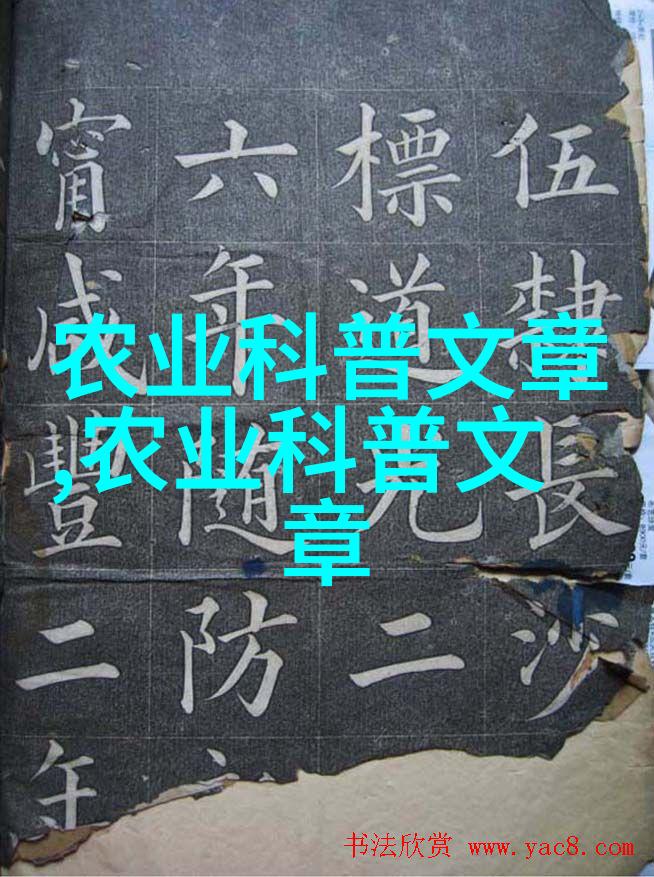 伍隷長沙
標道光二
六年隨防
甯咸豐二年
农业科普文章
,农业科普文
章
书法欣赏 www.yac8.com